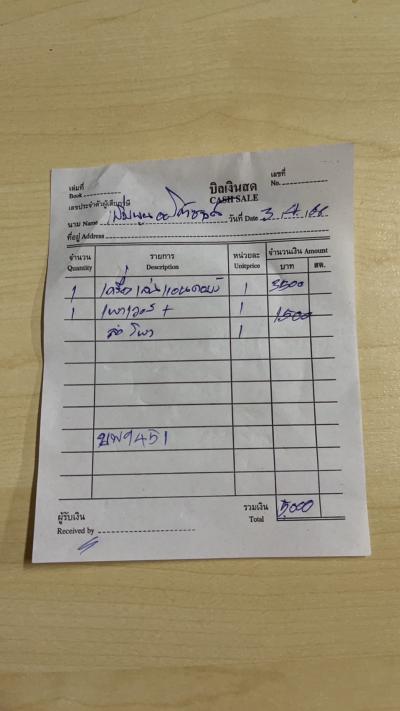 เล่มที่
Book
เลขที่
No.
บิลเงินสด
CASH SALE
เลขประจำตัวผู้เสียภาษี
นาม Name เพิ่มพูน วันที่ Date 3
ที่อยู่ Address
จำนวน Quantity รายการ Description หน่วยละ Unitprice จำนวนเงิน Amount
บาท สต.
1 เครื่องเล่นแอนดอย 1 3500
1 เพาเวอร์ + 1 1500
ลำโพง 1
9451
ผู้รับเงิน
Received by
รวมเงิน
Total 5,000